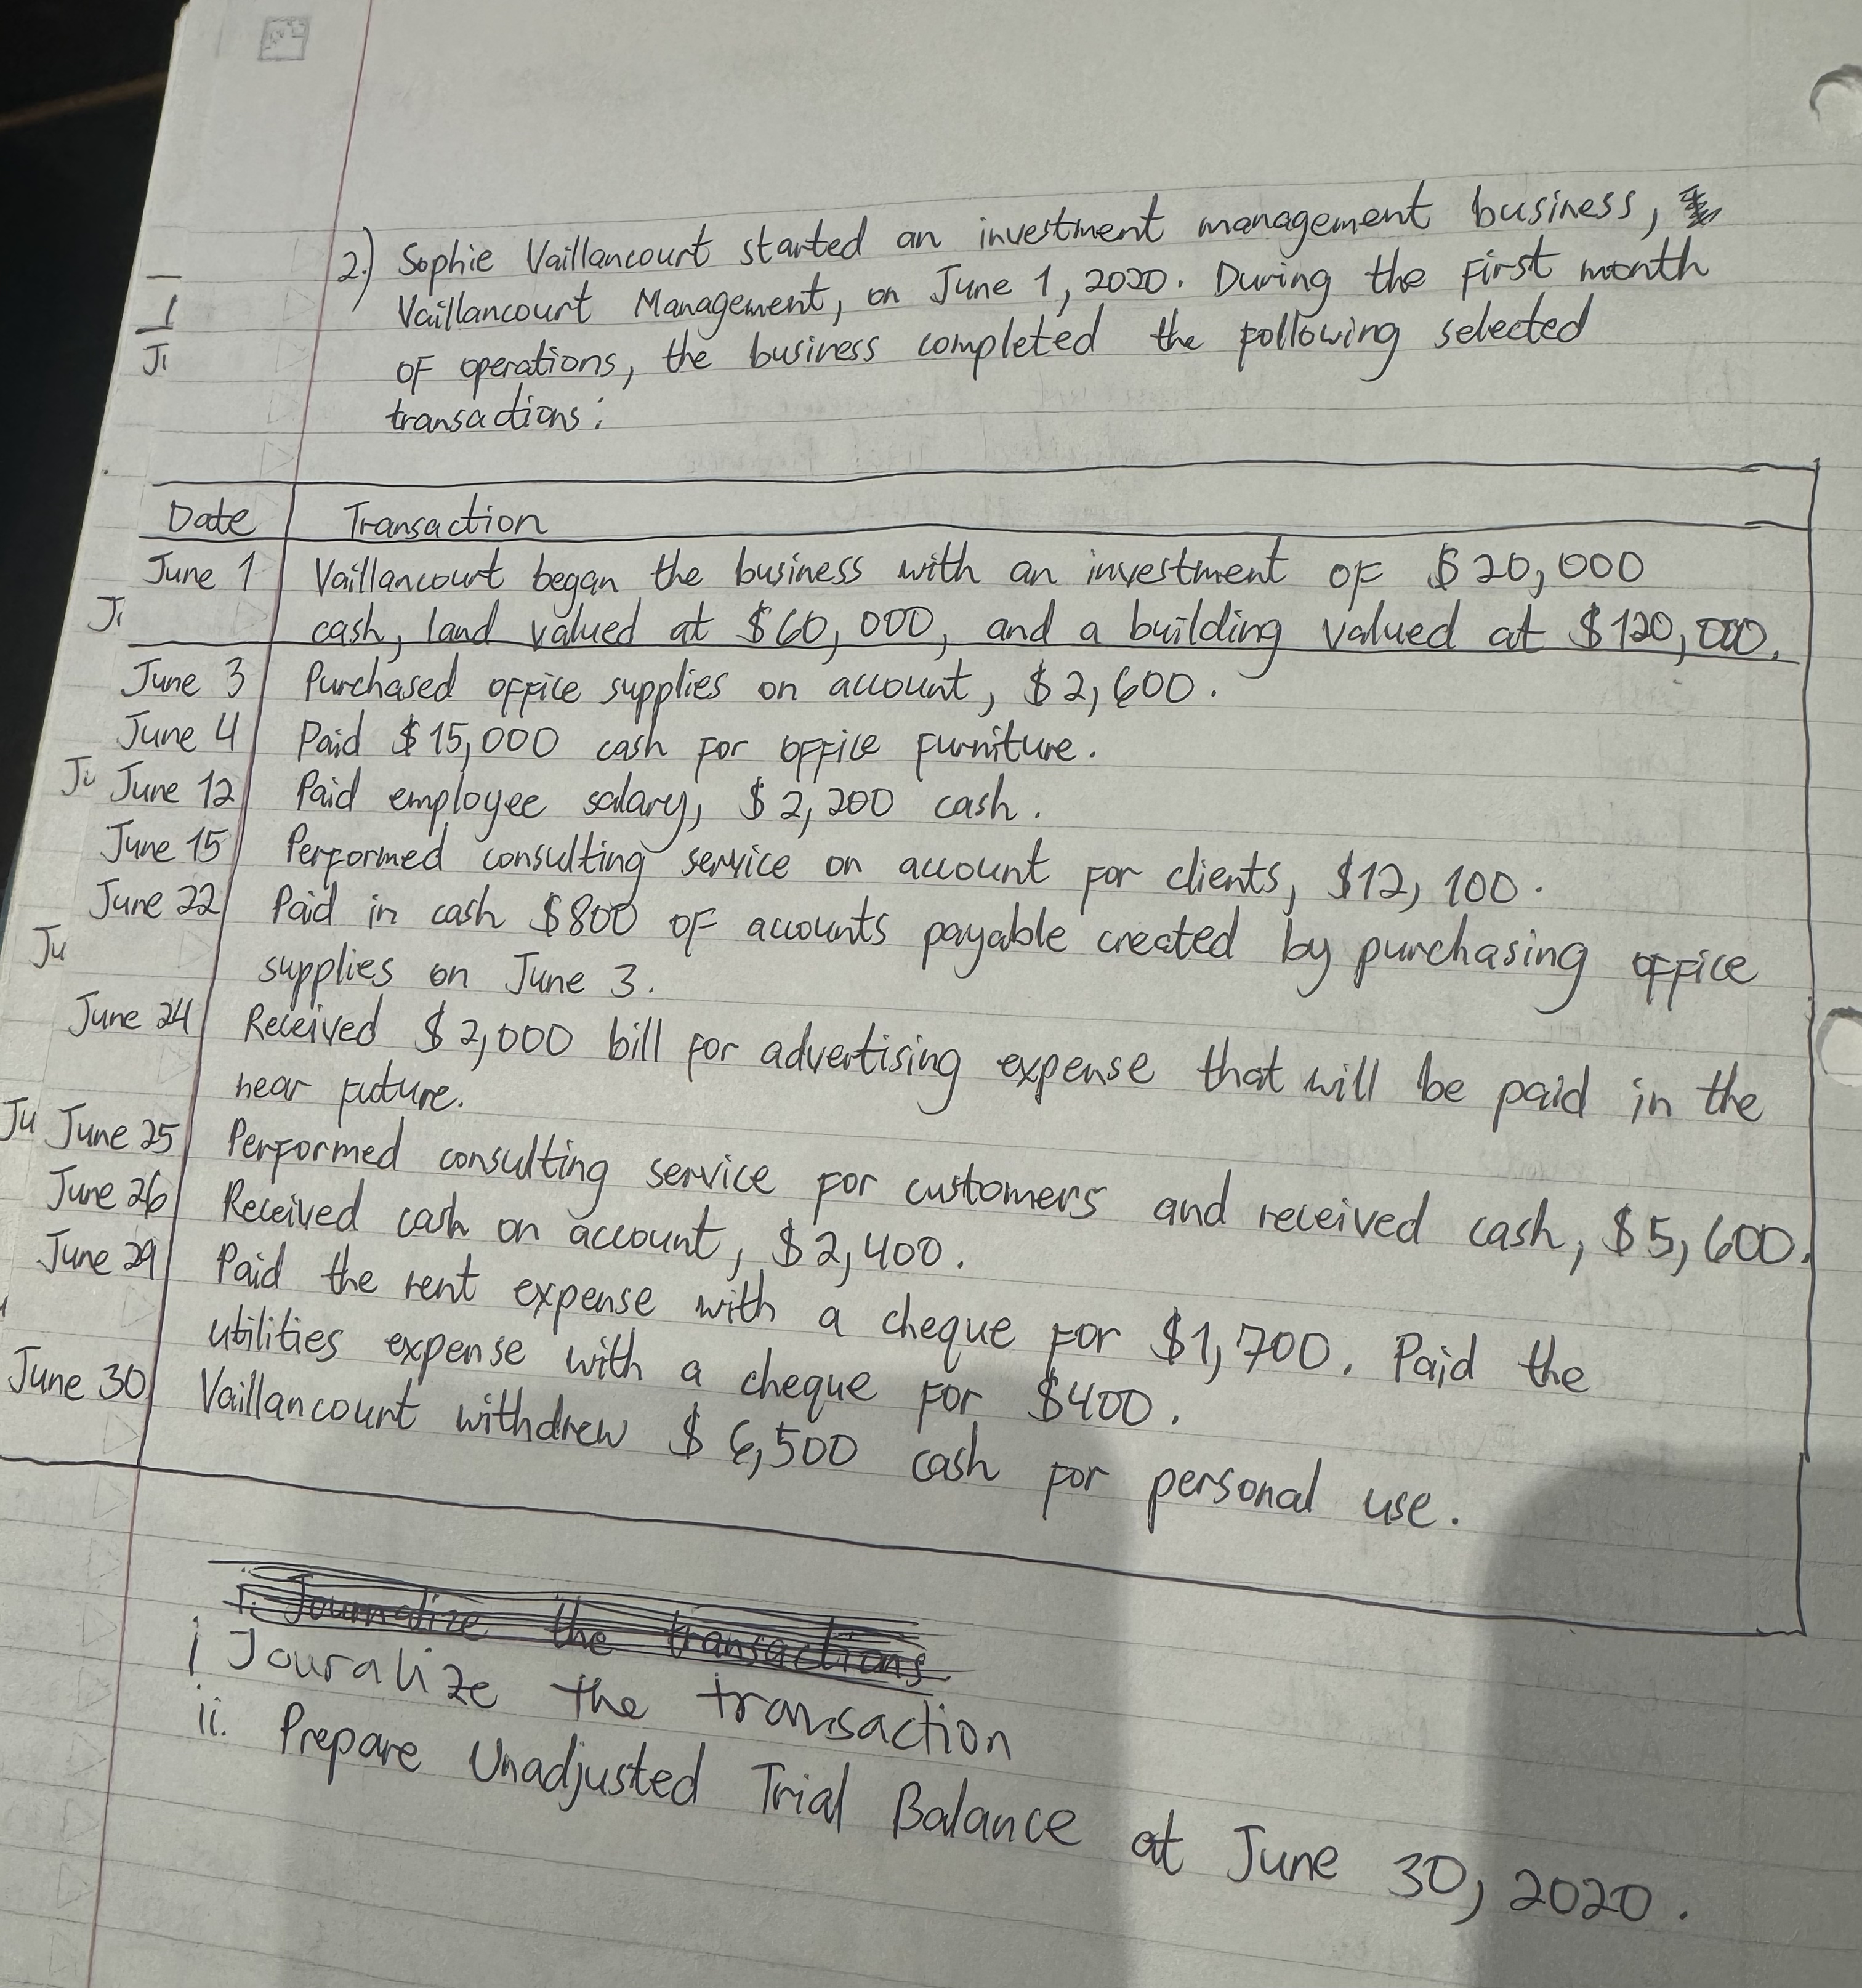 2.) Sophie Vaillancourt started an investment management business,
Vaillancourt Management, on June 1, 2020. During the first month
of operations, the business completed the following selected
transactions:
Date Transaction
June 1 Vaillancourt began the business with an investment of $20,000
cash, land valued at $60,000, and a building valued at $120,000.
June 3 Purchased office supplies on account, $2,600.
June 4 Paid $15,000 cash for office furniture.
June 12 Paid employee salary, $2,200 cash.
June 15 Performed consulting service on account for clients, $12,100.
June 22 Paid in cash $800 of accounts payable created by purchasing office
supplies on June 3.
June 24 Received $2,000 bill for advertising expense that will be paid in the
near future.
June 25 Performed consulting service for customers and received cash, $5,600.
June 26 Received cash on account, $2,400.
June 29 Paid the rent expense with a cheque for $1,700. Paid the
utilities expense with a cheque for $400.
June 30 Vaillancourt withdrew $6,500 cash for personal use.
i. Journalize the transactions
i Jouralize the transaction
ii. Prepare Unadjusted Trial Balance at June 30, 2020.